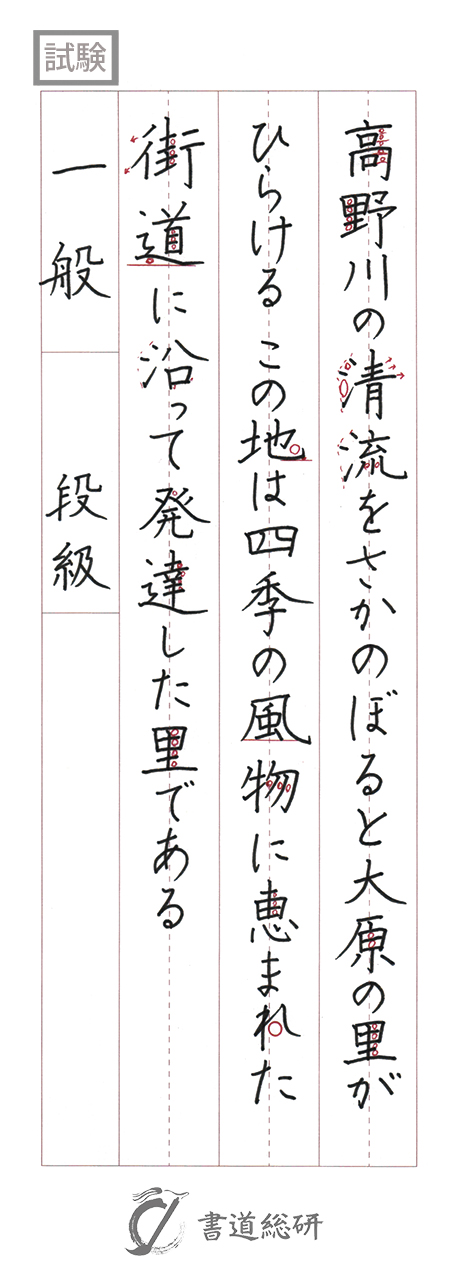 試験
高野川の清流をさかのぼると大原の里が
ひらける この地は四季の風物に恵まれた
街道に沿って発達した里である
一般 段級
書道総研